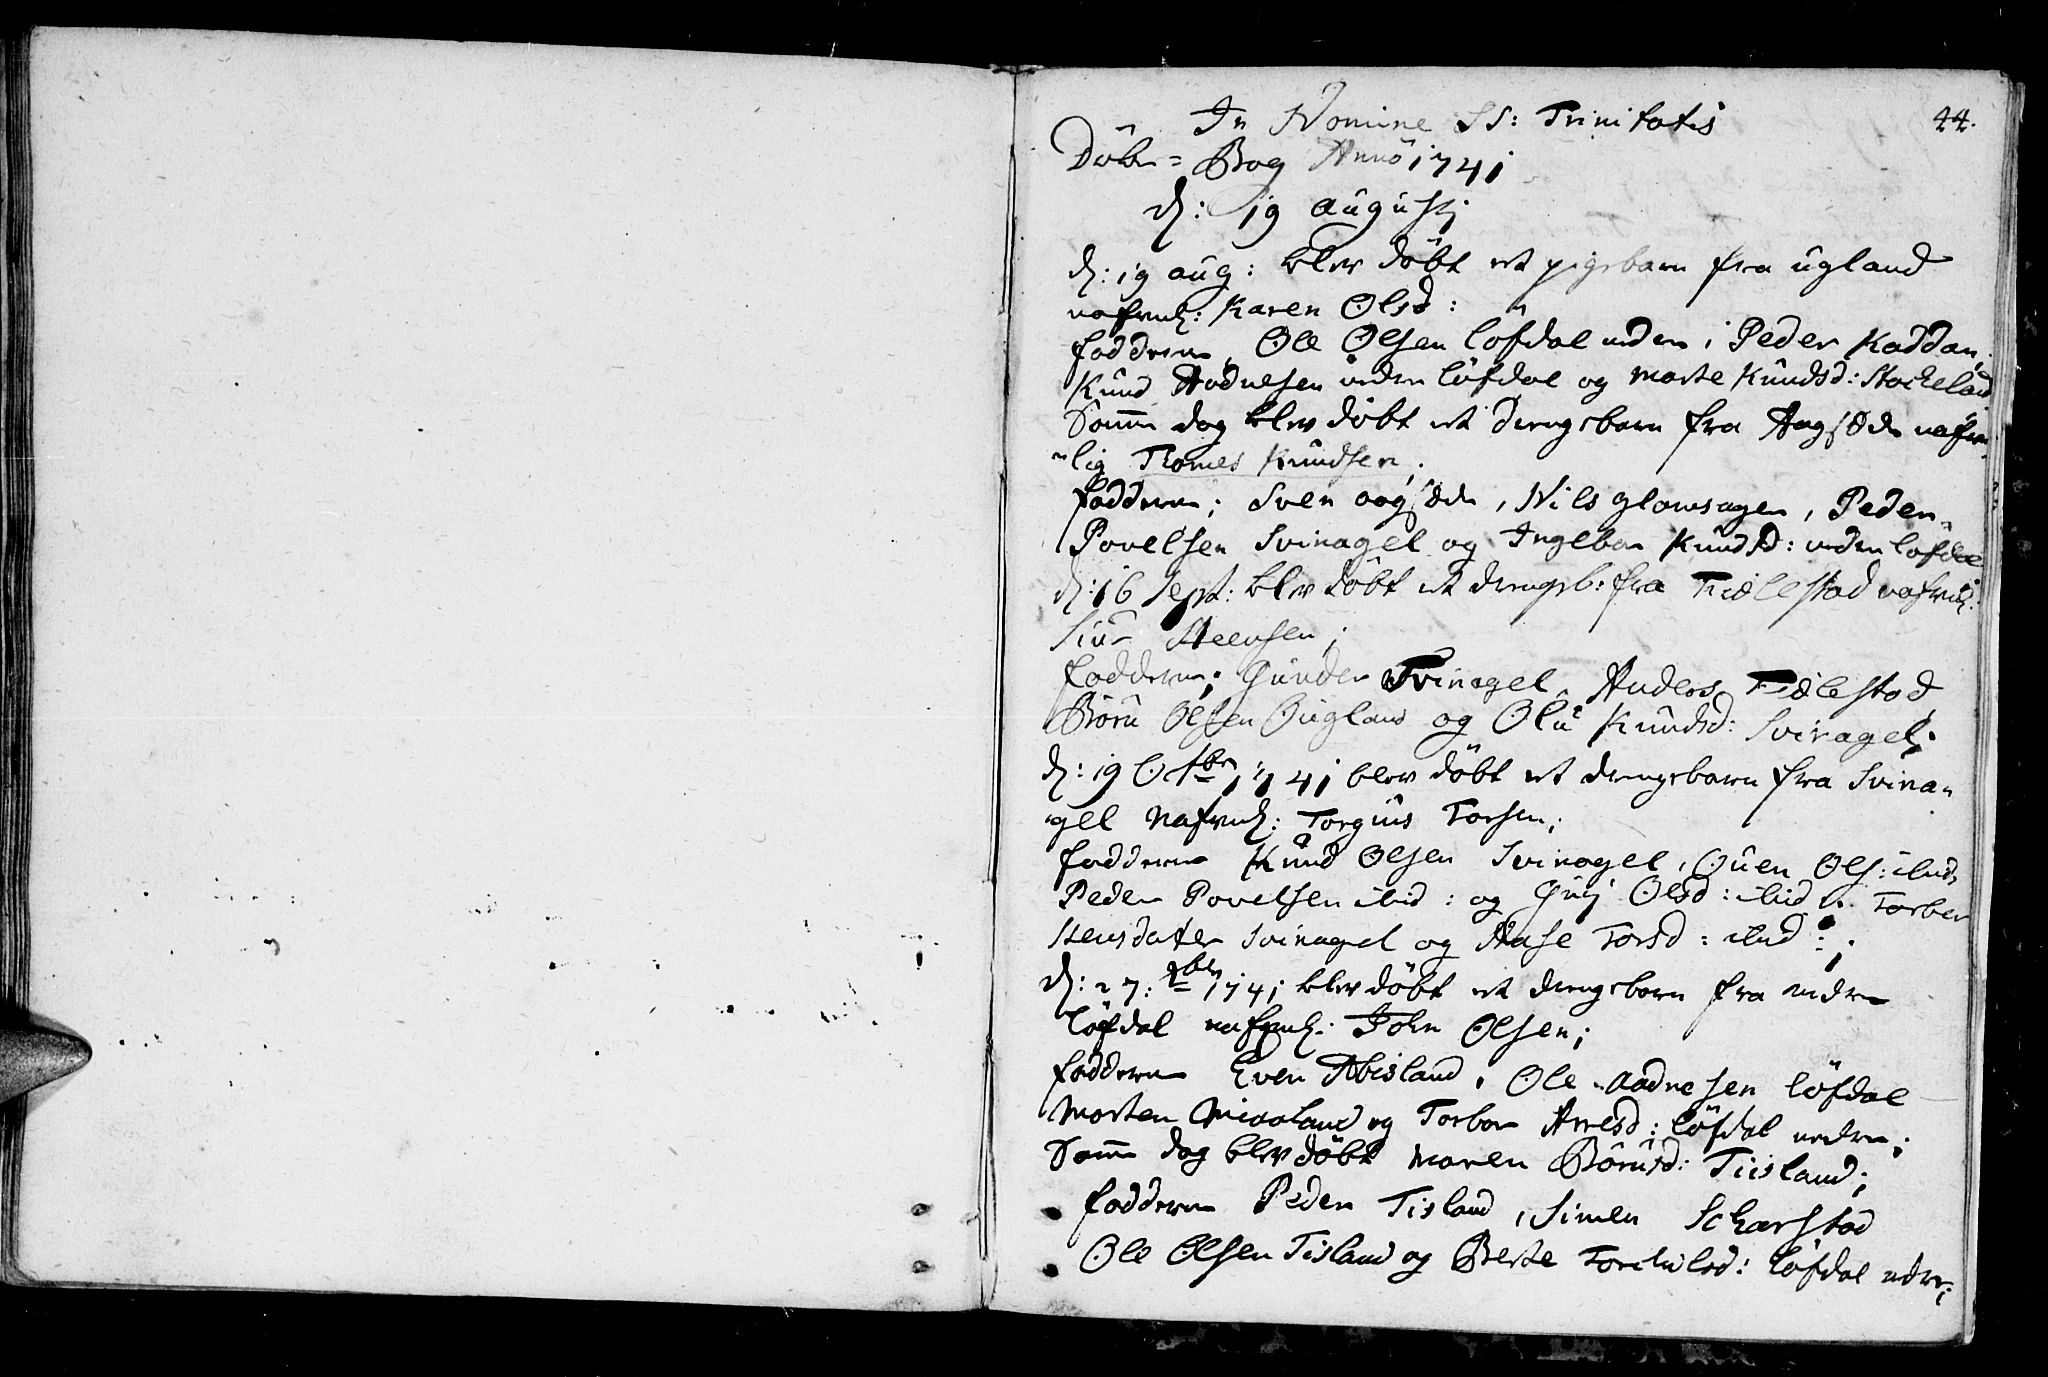 44.
In Nomine SS: Trinitatis
Döbe = Bog Anno 1741
d: 19 augustj
d: 19 aug: blev döbt et pigebarn fra ugland
nafnl: Karen Olsd:
faddere, Ole Olsen löfdal neder, Peder Kaddan,
Knud Aadnesen nedre löfdal og marte Knudsd: Stockeland
Samme dag blev döbt et drengebarn fra Aagsæde nafn
lig Thomes Knudsen.
faddere; Sven aagsæde, Nils glamsagen, Peder
Povelsen Svinagel og Ingebor Knudsd: neder löfdal
d: 16 Sept: blev döbt et drengeb: fra Fidlestad nafnl:
Siur Steensen;
faddere; Gunder Svinagel, Anders Fidlestad,
Böru Olsen Ougland og Olu Knudsd: Svinagel;
d: 19 Octbr 1741 blev döbt et drengebarn fra Svina-
gel nafnl: Torgius Torsen;
faddere Knud Olsen Svinagel, Ouen Ols: ibid,
Peder Povelsen ibid: og Gurj Olsd: ibid. Torber
Stensdater Svinagel og Aase Torsd: ibid:
d: 27: 8br 1741 blev döbt et drengebarn fra nedre
löfdal nafnl: John Olsen;
faddere Even Abisland, Ole Aadnesen löfdal
Morten Miaaland og Torbor Arresd: löfdal nedre;
Samme dag blev döbt maren Börusd: Tiisland;
faddere Peder Tisland, Simen Scharstad
Ole Olsen Tisland og Berte Torchilsd: löfdal nedre;